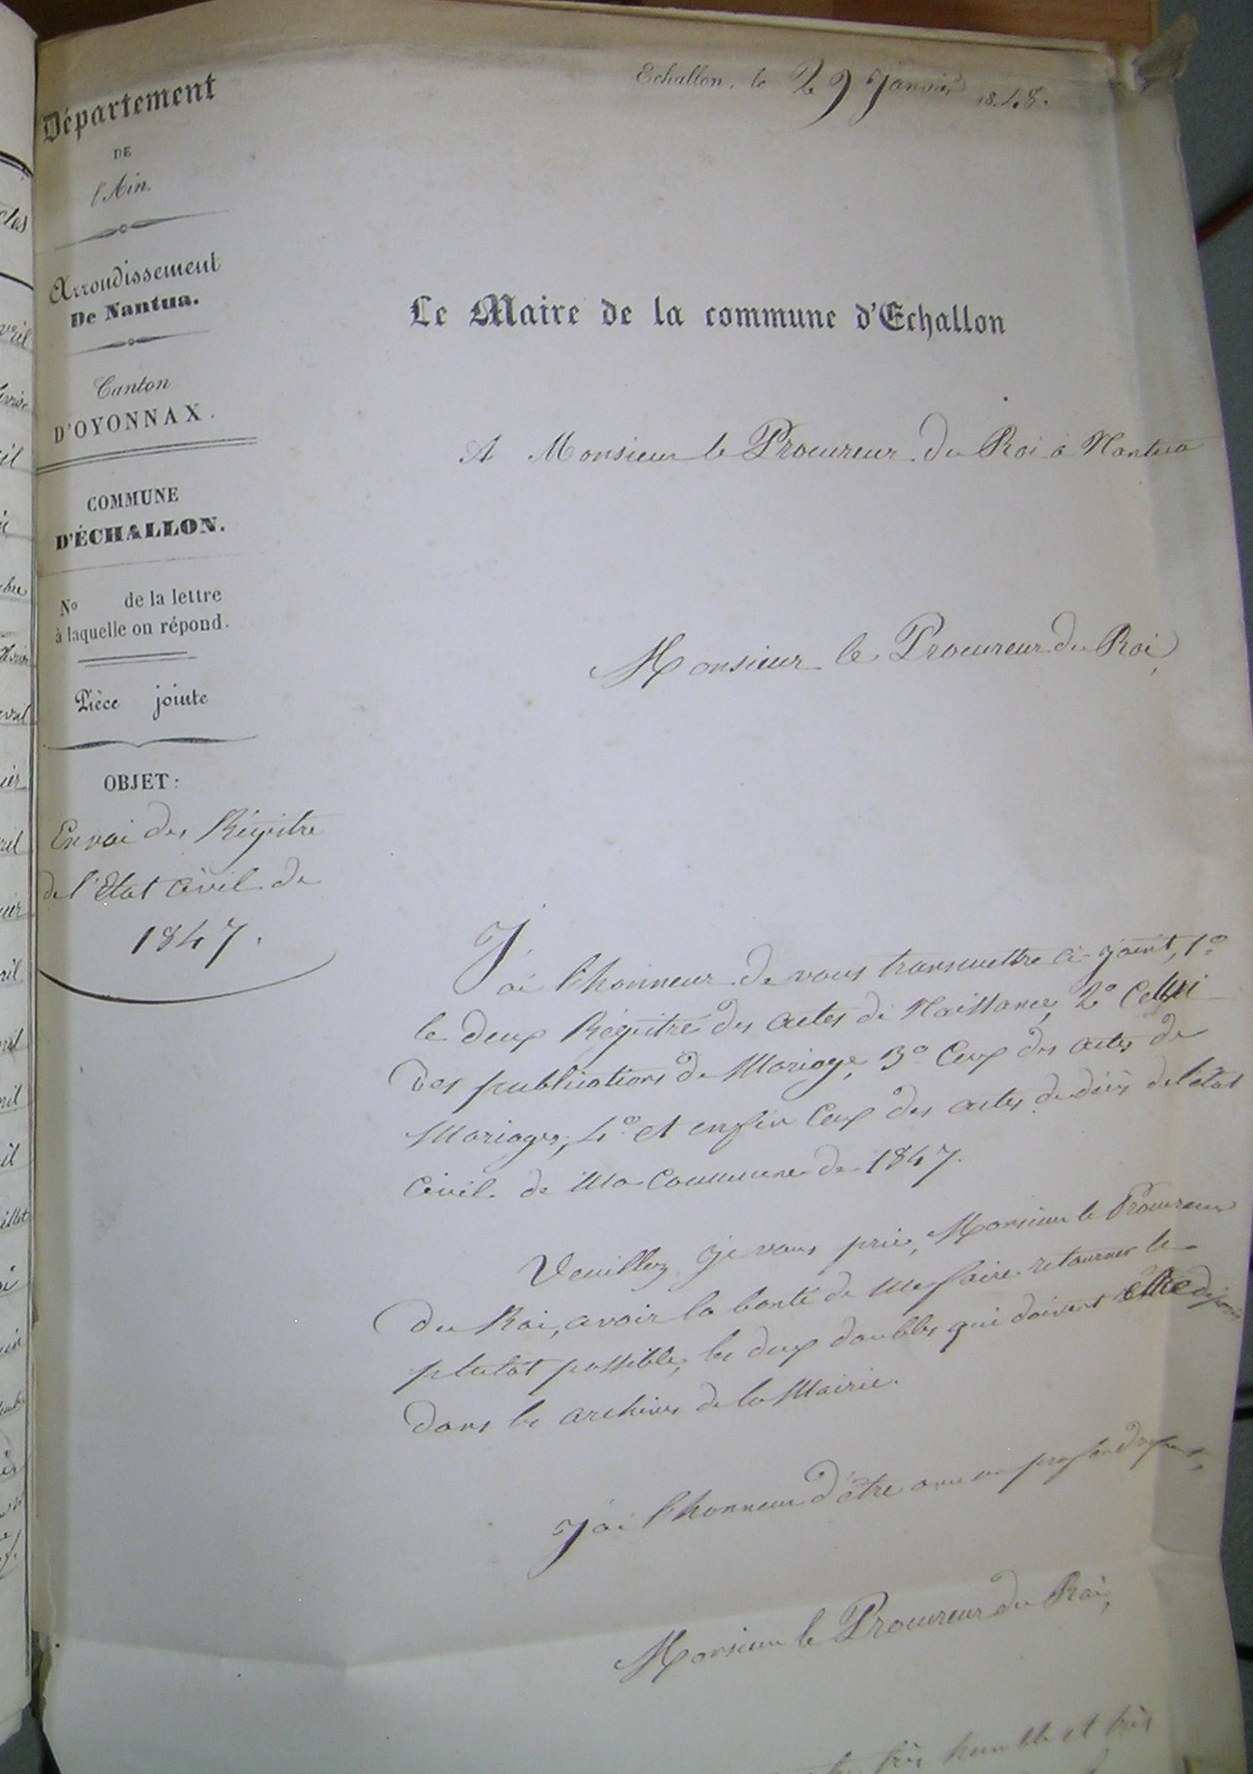 Echallon, le 29 Janvier 1848.
Département
DE
l'Ain.
Arrondissement
De Nantua.
Canton
D'OYONNAX.
COMMUNE
D'ÉCHALLON.
No de la lettre
à laquelle on répond.
Pièce jointe
OBJET:
Envoi des Régistre
de l'Etat Civil de
1847.
Le Maire de la commune d'Echallon
A Monsieur le Procureur du Roi à Nantua
Monsieur le Procureur du Roi,
J'ai l'honneur de vous transmettre ci-joint, 1°
le deux Régistre des actes de Naissance, 2° Cellui
des publications de Mariage, 3° Ceux des actes de
Mariages, 4° et enfin Ceux des actes de décès de l'état
Civil de Ma Commune de 1847.
Veuillez, je vous prie, Monsieur le Procureur
du Roi, avoir la bonté de me faire retourner le
plutôt possible, les deux doubles qui doivent être
dans les archives de la Mairie.
J'ai l'honneur d'être avec un profond respect,
Monsieur le Procureur du Roi,
très humble et très